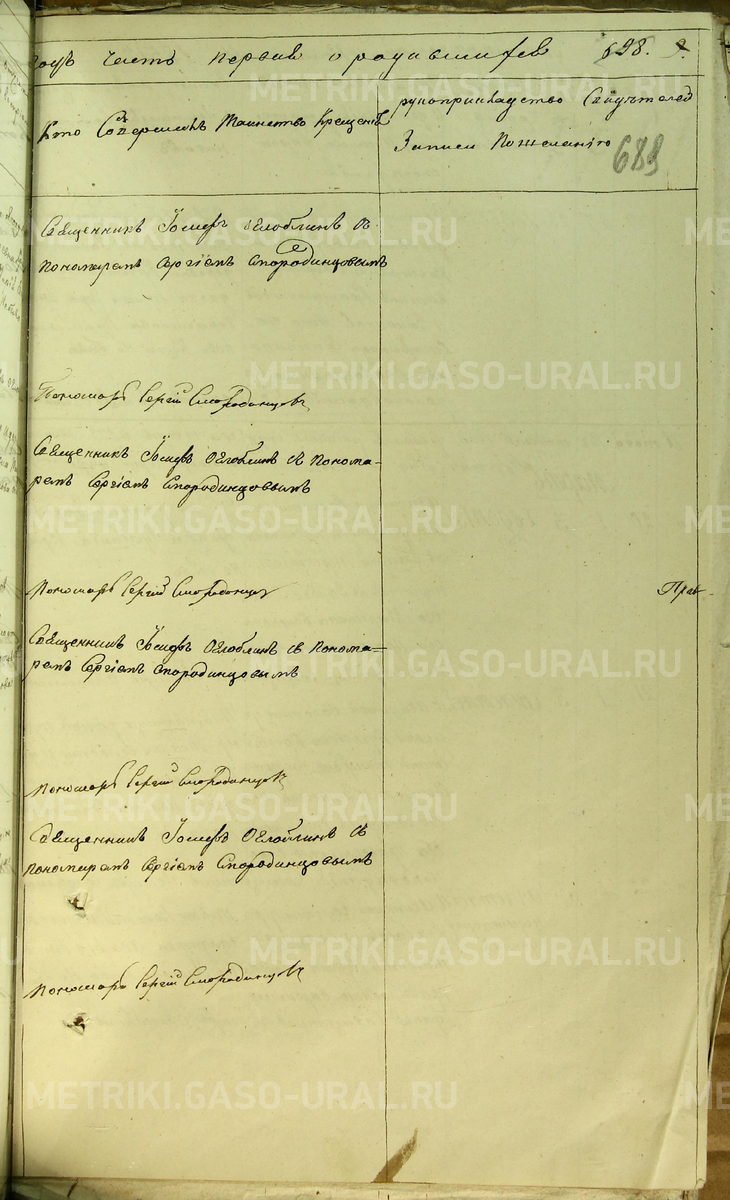 годъ часть первая о родившихся 698.
Кто Совершилъ Таинство Крещенія
рукоприкладство Свидѣтелей
Записи По желанію
689
Священникъ Іосифъ Оглоблинъ съ
пономаремъ Сергіемъ Смородинцовымъ
Пономарь Сергій Смородинцовъ
Священникъ Іосифъ Оглоблинъ съ понома-
ремъ Сергіемъ Смородинцовымъ
Пономарь Сергій Смородинцовъ
Прав-
Священникъ Іосифъ Оглоблинъ съ понома-
ремъ Сергіемъ Смородинцовымъ
Пономарь Сергій Смородинцовъ
Священникъ Іосифъ Оглоблинъ съ
пономаремъ Сергіемъ Смородинцовымъ
Пономарь Сергій Смородинцовъ
METRIKI.GASO-URAL.RU